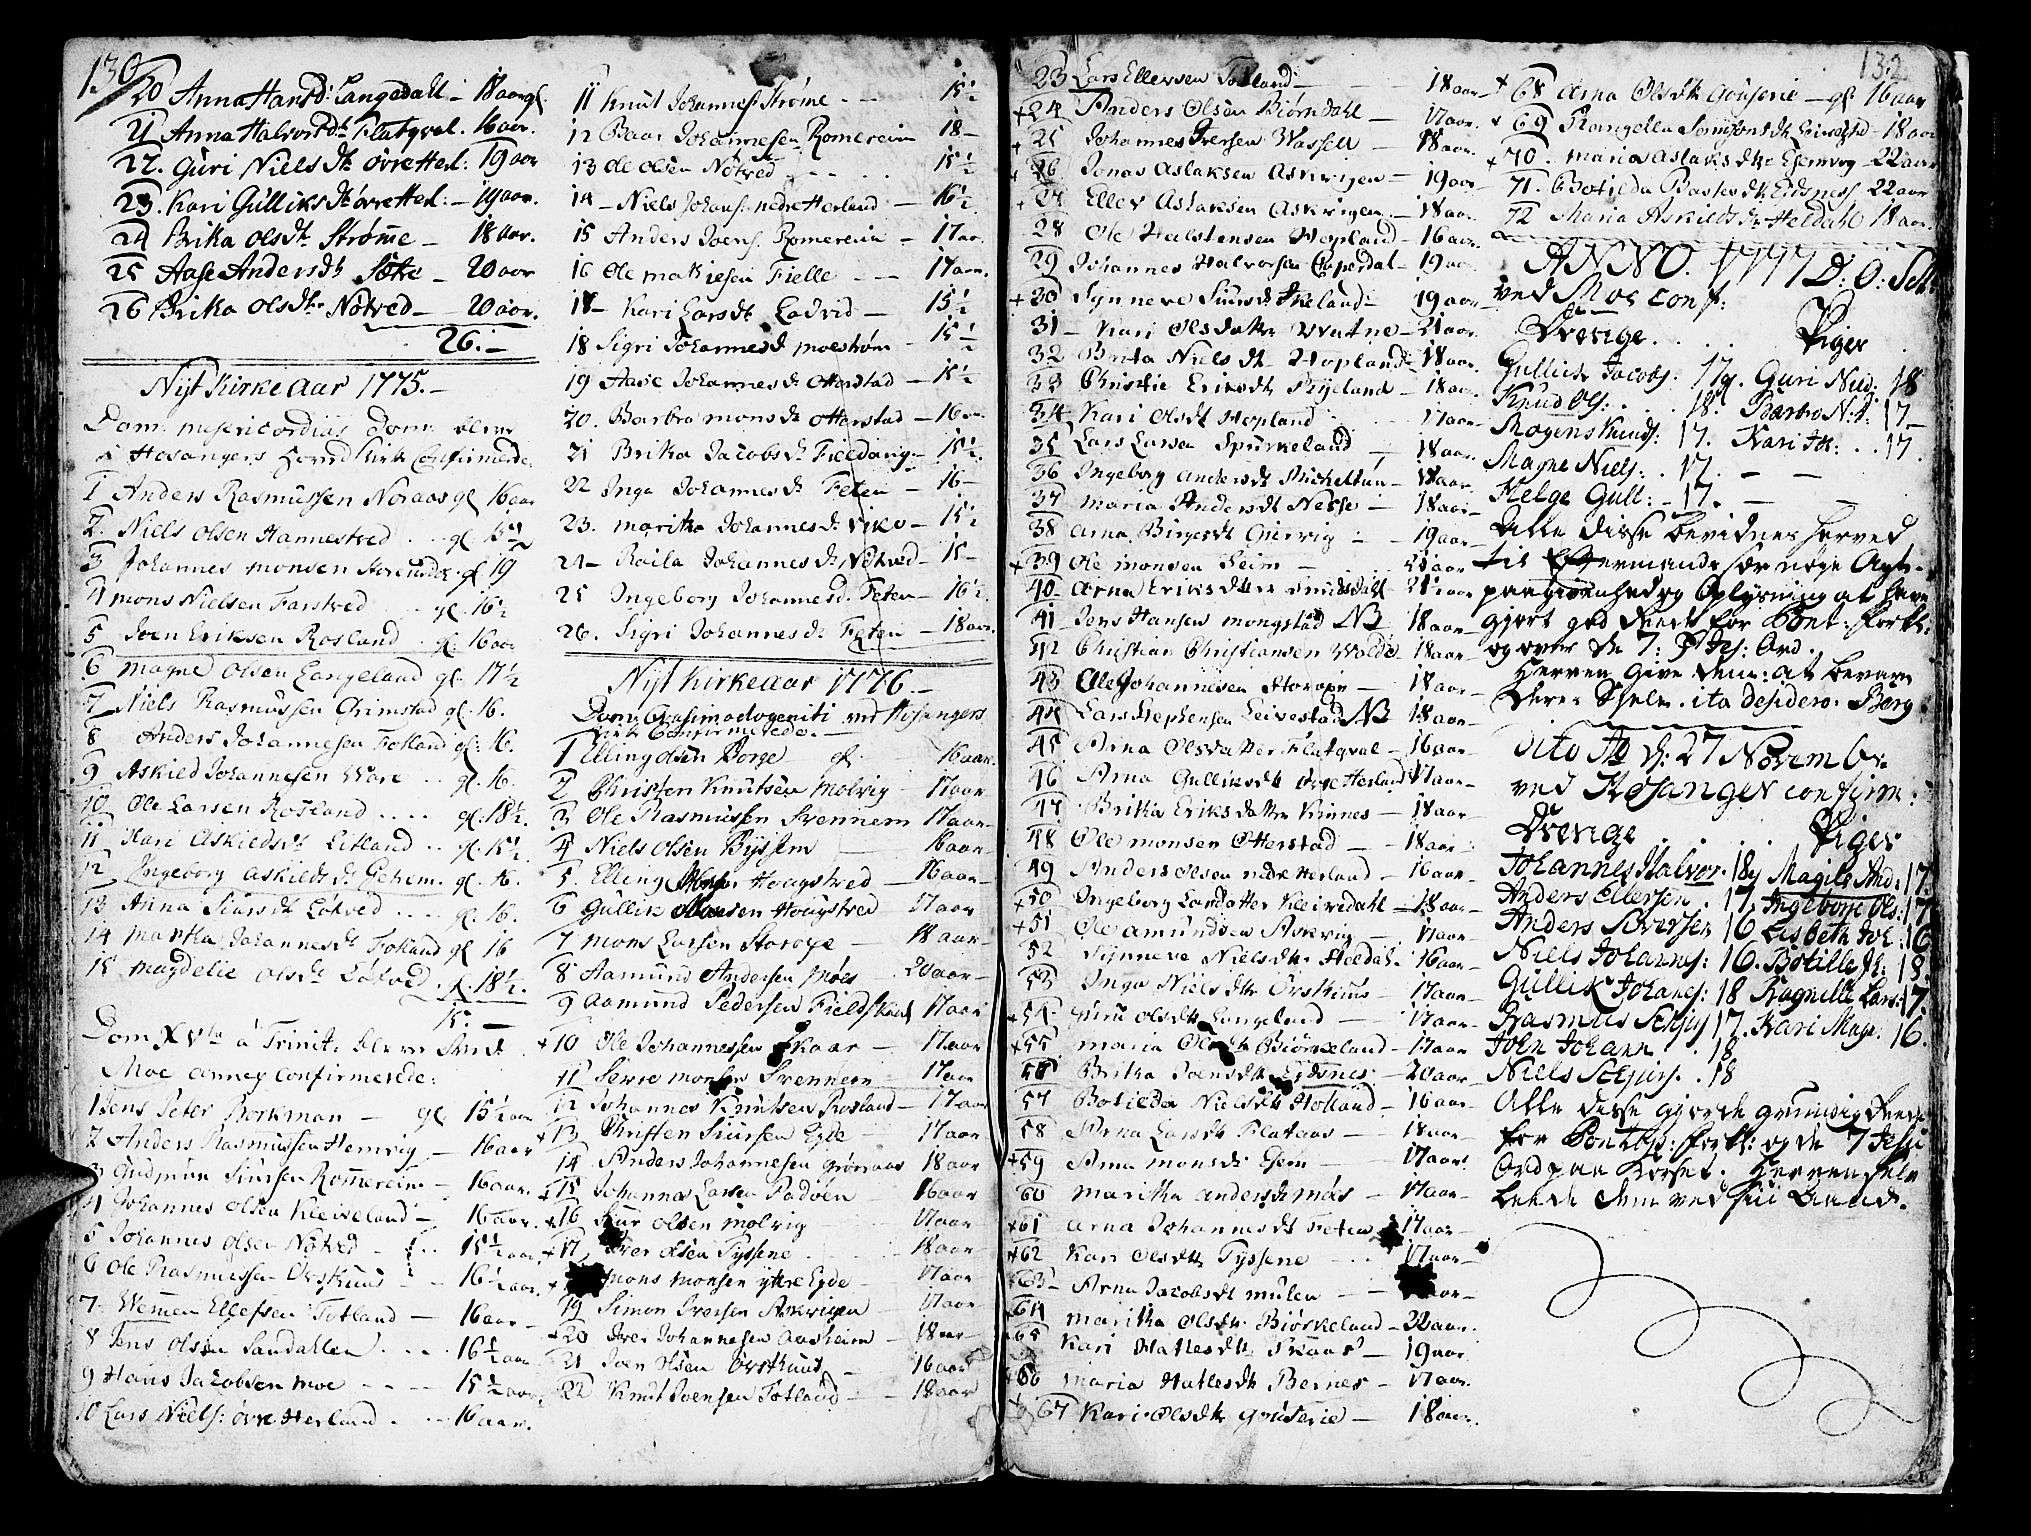 130
20 Anna Hansd: Langedahl - 18 aar gl.
21 Anna Halvorsdtr Flatqval. 16 aar.
22. Guri Niels dtr øvre Herl: 19 aar
23. Kari Gulliksdtr øvre Herl: - 19 aar.
24 Brika Olsdtr Strøme - 18 aar.
25 Aase Anders dtr Søtre - 20 aar
26 Brika Olsdtr Nøtved - 20 aar.
26. -
Nyt Kirke Aar 1775. -
Dom: misericordias Dom:
i Hosangers Hoved Kirk Confirmerede:
1 Anders Rasmussen Noraas gl 16 aar
2. Niels Olsen Hannestved . . gl. 15 1/2
3 Johannes Monsen gl 19
4 Mons Nielsen Farstved . . gl. 16 1/2
5 Joen Eriksen Rosland . gl. 16 aar
6 Magne Olsen Langeland gl. 17 1/2
7 Niels Rasmussen Grimstad gl. 16.
8 Anders Johannesen Fotland gl. 16.
9 Askild Johannesen Ware . . gl. 16.
10. Ole Larsen Rosland . . . . gl. 18 1/2.
11 Kari Askieldsdtr Litland . . gl. 15 1/2
12 Ingeborg Askieldsdtr Gehem. gl. 16.
13 Anna Siursdtr Løtved . . . . gl. 16.
14 Martha Johannesdtr Fotland gl 16
15 Magdelie Olsdtr Løtved . gl. 18 1/2.
15. -
Dom XVta a Trinit:
Moe annex Confirmerede:
1 Jens Peter Borkman - gl 15 1/2 aar
2 Anders Rasmussen Hemvig - 16 aar
3 Gudmun Siursen Romereim - 16 aar.
4 Johannes Olsen Kleiveland - 16 aar.
5 Johannes Olsen Nøtved - . . 15 1/2 aar.
6 Ole Rasmussen Ørskuus - 16 1/2 aar.
7. Wemen Ellefsen Totland - 16 aar -
8 Jens Olsen Sandahlen . . . . 16 1/2 aar
9 Hans Jacobsen Moe - - - - 15 1/2 aar.
10 Lars Niels: øvre Herland . . . 16 aar.
11 Knut Johannes: Strøme . - - 15 1/2
12 Baar Johannesen Romereim 18 -
13 Ole Olsen Nøtved - - - . . 15 1/2
14 - Niels Johans: nedre Herland - 16 1/2
15 Anders Joens. Romereim - 17 aar.
16 Ole Matiesen Fielle - - - 17 aar.
17 - Kari Larsdtr Ladvid - 15 1/2
18 Sigri Johannesd. Moestrøm - 15 1/2
19 Aase Johannesd. Otterstad - 15 1/2
20. Barbra Monsdtr Otterstad - 16 aar.
21 Brika Jacobsdtr Fieldang - 15 1/2.
22 Inga Johannesdtr Feten - 16 -
23. Maritha Johannesd. Vike - 15 1/2
24 - Raila Johannesdtr Nøtved - 15 -
25 Ingeborg Johannesd. Feten - 16 1/2
26. Sigri Johannesdtr Feten - 18 aar.
Nyt Kirke Aar 1776. -
Dom: Quasimodogeniti ved Hosangers
Kirk Confirmerede. -
1 Elling Olsen Borge - gl. - 16 aar.
2 Christen Knutsen Molvig - 17 aar
3 Ole Rasmussen Svennem 17 aar -
4 Niels Olsen Byssem - 16 aar -
5. Elling Haugstved - 16 aar -
6 Gullik Haugstved - 17 aar
7 Mons Larsen Storoye - 18 aar -
8 Aamund Andersen Moes - 20 aar -
9 Aamund Pedersen Fieldskaal 17 aar
+10 Ole Johannessen Skaar - 17. aar
11 Sevre Monsen Svennem - 17 aar
12 Johannes Knutsen Rosland - 17 aar
+13 Christen Siursen Eyde - 17 aar
14 Anders Johannesen Grønaas 18 aar
+15 Johannes Larsen Padøen - 16 aar
+16 Siur Olsen Molvig - - 17 aar
+17 Iver Olsen Tyssene . . . 18 aar
+ Mons Monsen ytre Eyde - 17 aar
19 Simon Iversen Askvigen - 17 aar
+20 Iver Johannesen Aasheim - 18 aar -
21 Joen Olsen Ørskuus - 16 aar
22 Knut Joensen Totland - 18 aar
132
23 Lars Ellersen Totland - 18 aar -
+24 Anders Olsen Biørndahl - 17 aar.
+25 Johannes Iversen Wassell - 18 aar.
+26 Jonas Aslaksen Askvigen - 19 aar -
+27 Ellev Aslaksen Askvigen - 18 aar.
28 Ole Halstensen Hopland - 16 aar.
29 Johannes Halvorsen - 19 aar.
+30 Synneve Siursdtr Skeland - 19 aar
31 - Kari Olsdatter Vratne - 21 aar
32 Brita Nielsdtr Hopland - 18 aar.
33 Christie Eriksdtr Ryeland - 18 aar.
34 Kari Olsdtr Hopland - 17 aar -
35 Lars Larsen Spurkeland - 18 aar.
36 Ingeborg Andersdtr Mickeltun - 18 aar.
37 Maria Andersdtr Nesse - - 18 aar -
38 Anna Birgesdtr - - 19 aar
+39 Ole Monsen Seim - 21 aar
40 - Anna Eriksdatter - 21 aar
41 Jens Hansen Mongstad NB 18 aar -
42 Christian Christiansen Wolde - 18 aar -
43 Ole Johannesen Storoye - 18 aar -
44 Lars Stephensen Leivestad NB 18 aar -
45 Anna Olsdatter Flatqval - 16 aar -
46 Anna Gulliksdtr øvre Herland 17 aar -
47 Britha Eriksdatter Kinnes - 18 aar -
48 Ole Monsen Otterstad - 18 aar -
49 Anders Olsen nedre Herland - 16 aar -
+50 Ingeborg Larsdatter Kleivedahl - 18 aar -
+51 Ole Amundsen Askvig - 17 aar
52 Synneve Nielsdtr Heldal - 16 aar -
53 Inga Nielsdtr Ørskuus - 17 aar -
+54 Guri Olsdtr Langeland - 17 aar -
+55 Maria Olsdtr Biørkeland - 17 aar
56 Britha Joensdtr Eydsnes - 20 aar -
57 Botilda Nielsdtr Hotland - 16 aar -
58 Anna Larsdtr Flataas - 18 aar -
+59 Anna Monsdtr - 17 aar
60 Maritha Andersdtr Moes - 17 aar -
+61 Anna Johannesdtr Feten - 17 aar -
+62 Kari Olsdtr Tyssene - . . - 17 aar -
+63 - Anna Jacobsdtr Mulen - - aar -
+64 Maritha Olsdtr Biørkeland - 22 aar.
+65 Kari Hatlesdtr Skaar - 19 aar
+66 Maria Hatlesdtr Bernes - 17 aar.
67 Kari Olsdtr - 18 aar.
+68 Anna Olsdtr - gl. 16 aar
+69 Rangella - 18 aar
+70. Maria Aslaksdtr - 22 aar
71. Botilda Eidsness 22 aar
72 Maria Askildsdtr Heldahl 18 aar.
ANNO. 1777 D: O:
ved Moe conf:
Drenge . . . . Piger
Gullich Jacobs: 17 g. Guri Niels: 18
Knud Ols: . . . . 18. Barbro N: d: 17 -
Mogens Knuds: 17. Kari : . . 17.
Magne Niels: . 17. - -
Helge Gull: - 17. - -
Alle disse bevidnes herved
til Eftermænd for nøye Agt-
paagivenhed og Oplysning at have
gjort god Rede for Pont: Forkl:
og over de 7: P: Jes: Ord.
Herren give dem: at bevare
deres Siele. ita desidero: Børg
Dito Ao d: 27 Novembr
ved Hosanger confirm:
Drenge . . . Piger
Johannes Halvor. 18 g Magile And: 17
Anders Ellersen . 17. Ingeborg Ols: 17
Anders Siversen 16 Lisbeth Joh: 16
Niels Johanns: 16. Botille : 18
Gullik Johans: 18 Ragnille Lars: 17
Rasmus 17. Kari Mage: 16.
John Johann . . 18
Niels . 18
Alle disse gjorde grundig Rede
for Pontop: Forkl: og de 7 Jesu
Ord paa Korset. Herren selv
leede dem ved sin Aand.